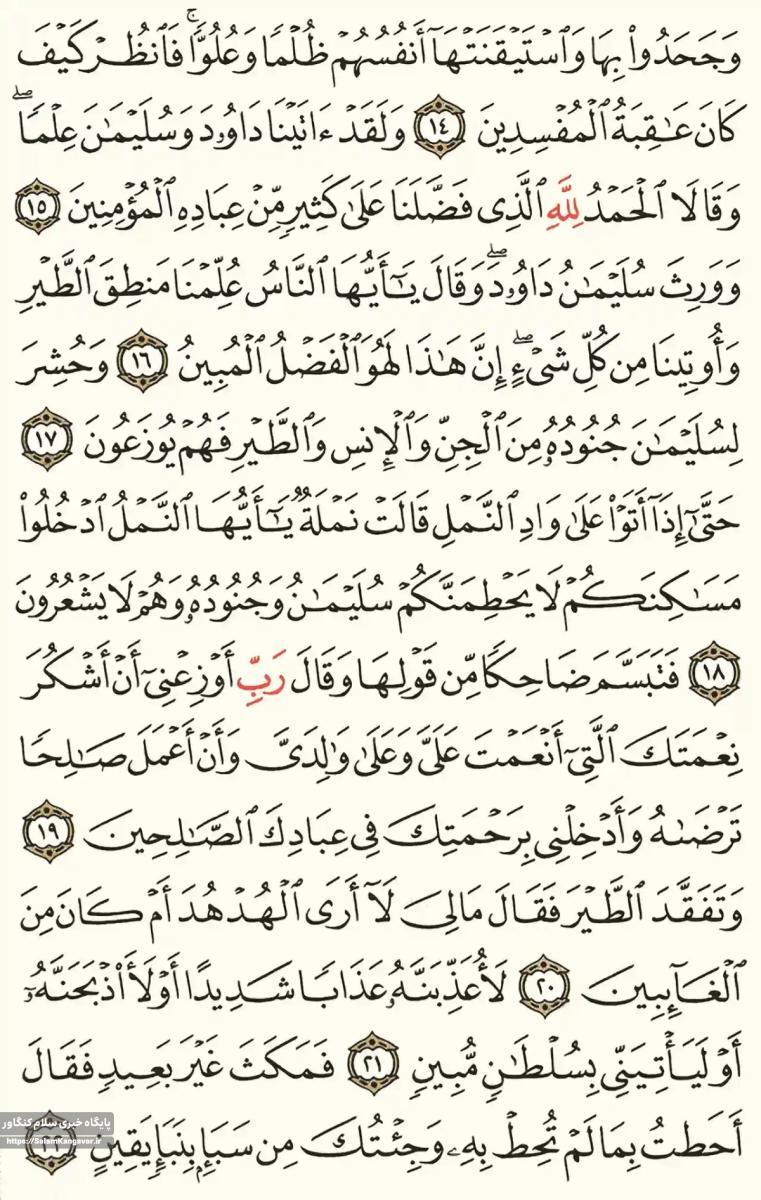 وَجَحَدُوا۟ بِهَا وَٱسْتَيْقَنَتْهَآ أَنفُسُهُمْ ظُلْمًا وَعُلُوًّا ۚ فَٱنظُرْ كَيْفَ
كَانَ عَـٰقِبَةُ ٱلْمُفْسِدِينَ ١٤ وَلَقَدْ ءَاتَيْنَا دَاوُۥدَ وَسُلَيْمَـٰنَ عِلْمًا ۖ
وَقَالَا ٱلْحَمْدُ لِلَّهِ ٱلَّذِى فَضَّلَنَا عَلَىٰ كَثِيرٍ مِّنْ عِبَادِهِ ٱلْمُؤْمِنِينَ ١٥
وَوَرِثَ سُلَيْمَـٰنُ دَاوُۥدَ ۖ وَقَالَ يَـٰٓأَيُّهَا ٱلنَّاسُ عُلِّمْنَا مَنطِقَ ٱلطَّيْرِ
وَأُوتِينَا مِن كُلِّ شَىْءٍ ۖ إِنَّ هَـٰذَا لَهُوَ ٱلْفَضْلُ ٱلْمُبِينُ ١٦ وَحُشِرَ
لِسُلَيْمَـٰنَ جُنُودُهُۥ مِنَ ٱلْجِنِّ وَٱلْإِنسِ وَٱلطَّيْرِ فَهُمْ يُوزَعُونَ ١٧
حَتَّىٰٓ إِذَآ أَتَوْا۟ عَلَىٰ وَادِ ٱلنَّمْلِ قَالَتْ نَمْلَةٌ يَـٰٓأَيُّهَا ٱلنَّمْلُ ٱدْخُلُوا۟
مَسَـٰكِنَكُمْ لَا يَحْطِمَنَّكُمْ سُلَيْمَـٰنُ وَجُنُودُهُۥ وَهُمْ لَا يَشْعُرُونَ
١٨ فَتَبَسَّمَ ضَاحِكًا مِّن قَوْلِهَا وَقَالَ رَبِّ أَوْزِعْنِىٓ أَنْ أَشْكُرَ
نِعْمَتَكَ ٱلَّتِىٓ أَنْعَمْتَ عَلَىَّ وَعَلَىٰ وَٰلِدَىَّ وَأَنْ أَعْمَلَ صَـٰلِحًا
تَرْضَىٰهُ وَأَدْخِلْنِى بِرَحْمَتِكَ فِى عِبَادِكَ ٱلصَّـٰلِحِينَ ١٩
وَتَفَقَّدَ ٱلطَّيْرَ فَقَالَ مَالِىَ لَآ أَرَى ٱلْهُدْهُدَ أَمْ كَانَ مِنَ
ٱلْغَآئِبِينَ ٢٠ لَأُعَذِّبَنَّهُۥ عَذَابًا شَدِيدًا أَوْ لَأَا۟ذْبَحَنَّهُۥٓ
أَوْ لَيَأْتِيَنِّى بِسُلْطَـٰنٍ مُّبِينٍ ٢١ فَمَكَثَ غَيْرَ بَعِيدٍ فَقَالَ
أَحَطتُ بِمَا لَمْ تُحِطْ بِهِۦ وَجِئْتُكَ مِن سَبَإٍۭ بِنَبَإٍ يَقِينٍ ٢٢
پایگاه خبری سلام کنگاور
https://SalamKangavar.ir